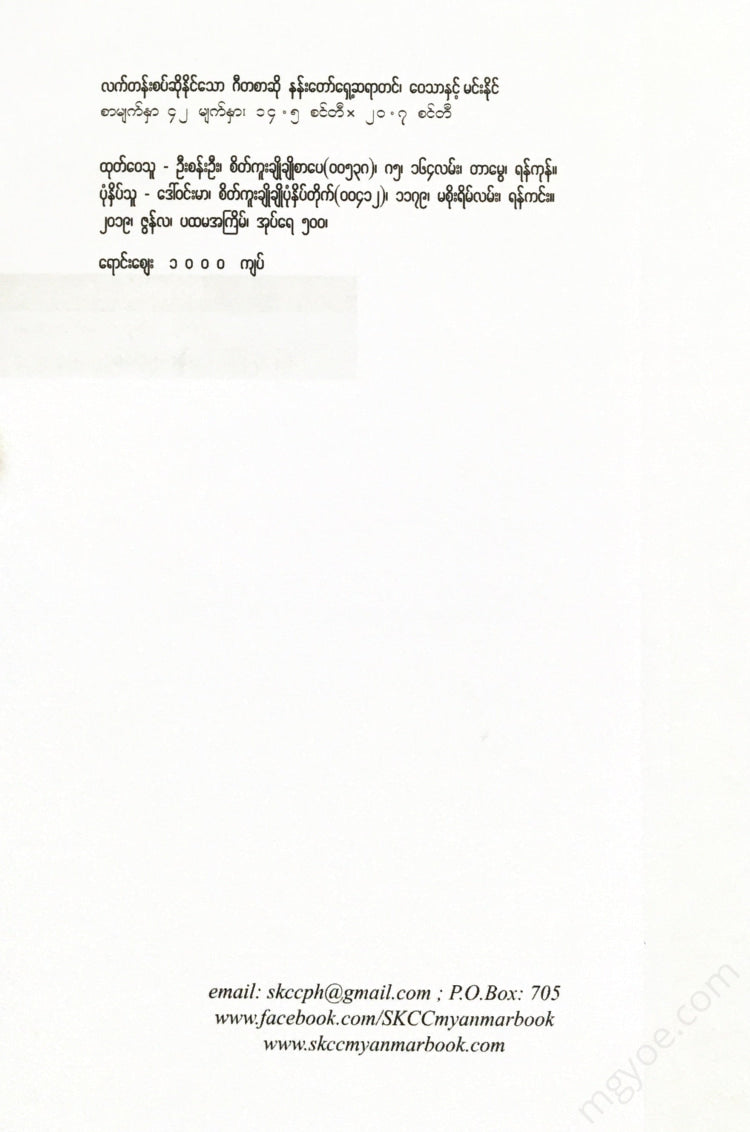 လက်တန်းစပ်ဆိုနိုင်သော ဂီတစာဆို နန်းတော်ရှေ့ဆရာတင်၊ ဝေသာနှင့် မင်းနိုင်
စာမျက်နှာ ၄၂ မျက်နှာ၊ ၁၄.၅ စင်တီ× ၂၀.၇ စင်တီ
ထုတ်ဝေသူ - ဦးစန်းဦး၊ စိတ်ကူးချိုချိုစာပေ(၀၀၅၃၈)၊ ဂ၅၊ ၁၆၄လမ်း၊ တာမွေ၊ ရန်ကုန်။
ပုံနှိပ်သူ - ဒေါ်ဝင်းမာ၊ စိတ်ကူးချိုချိုပုံနှိပ်တိုက်(၀၀၄၁၂)၊ ၁၁၇၉၊ မစိုးရိမ်လမ်း၊ ရန်ကင်း။
၂၀၁၉၊ ဇွန်လ၊ ပထမအကြိမ်၊ အုပ်ရေ ၅၀၀၊
ရောင်းဈေး ၁ ၀ ၀ ၀ ကျပ်
email: skccph@gmail.com ; P.O.Box: 705
www.facebook.com/SKCCmyanmarbook
www.skccmyanmarbook.com
mgyoe.com